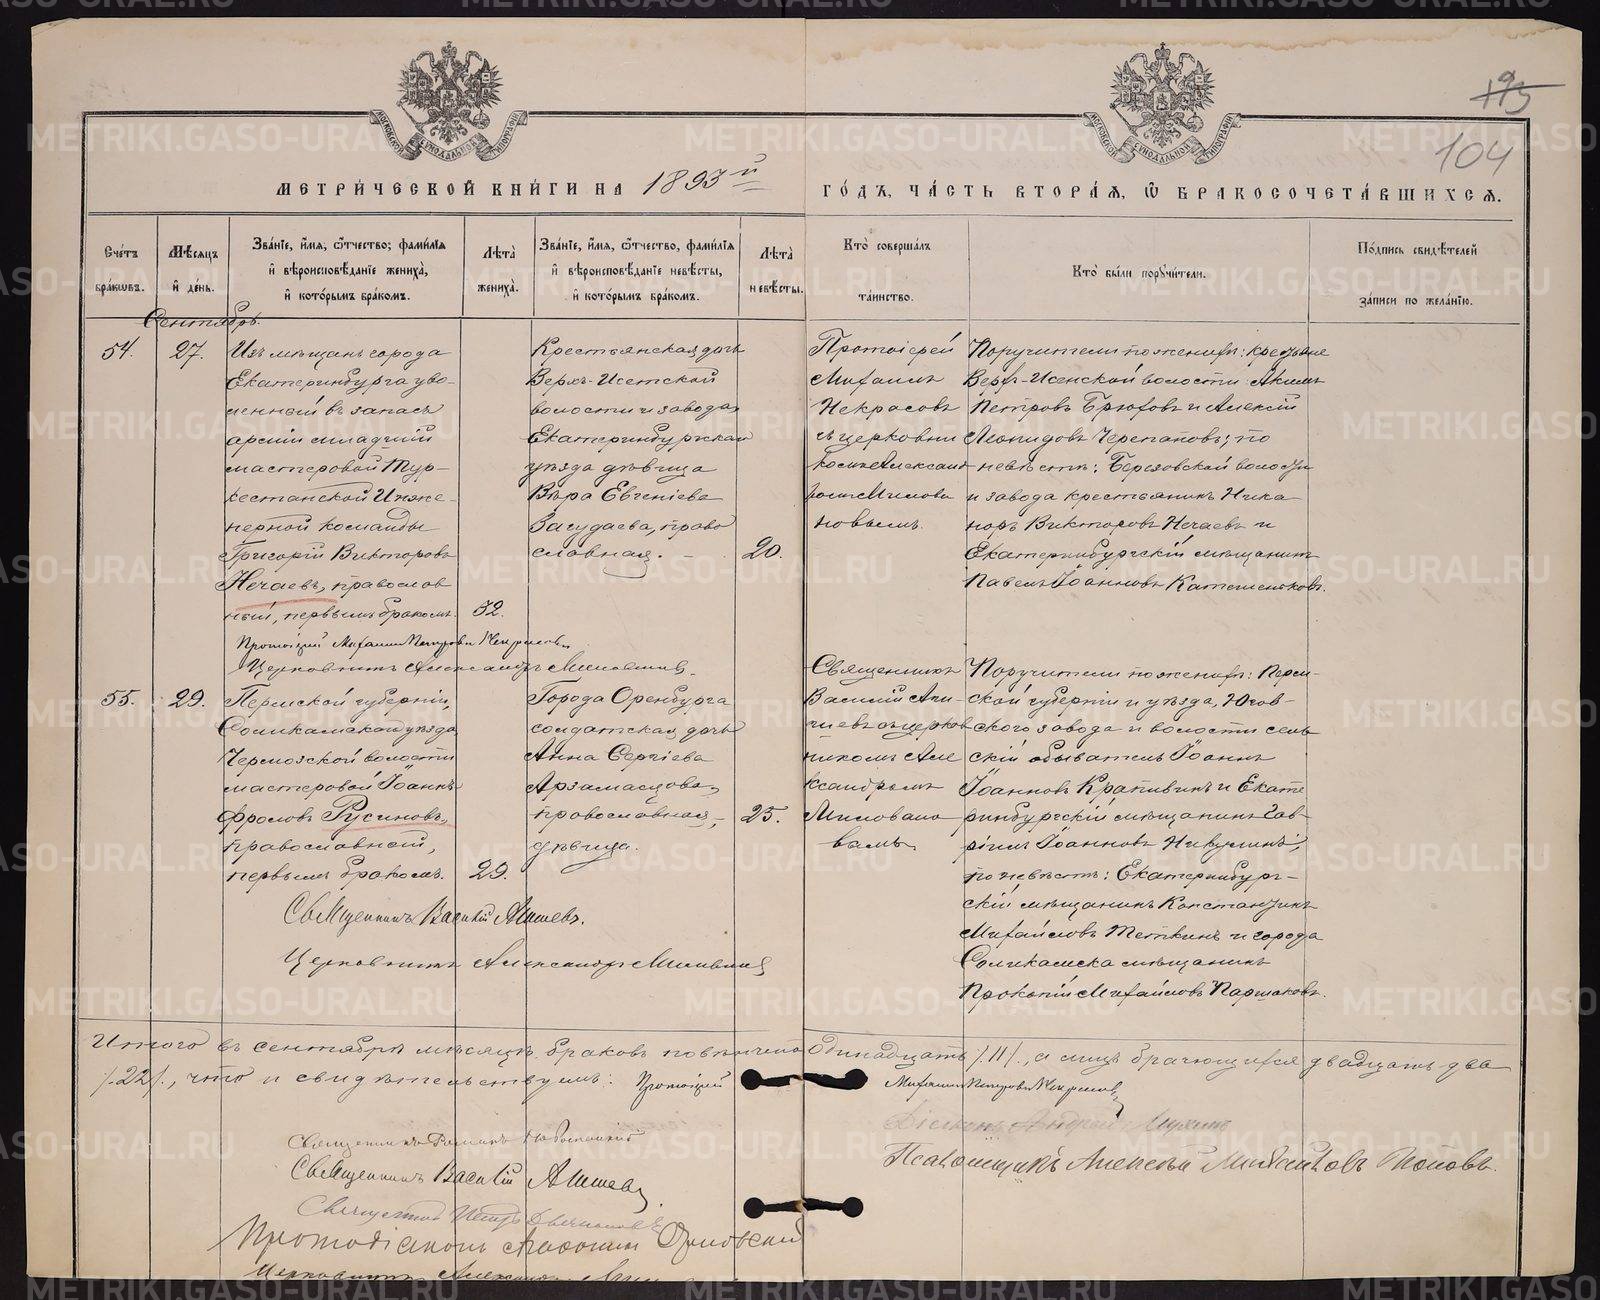 195
104
МОСКОВСКОЙ СѴНОДАЛЬНОЙ ТИПОГРАФІИ
МОСКОВСКОЙ СѴНОДАЛЬНОЙ ТИПОГРАФІИ
МЕТРИЧЕСКОЙ КНИГИ НА 1893й
ГОДЪ, ЧАСТЬ ВТОРАЯ, Ѡ БРАКОСОЧЕТАВШИХСЯ.
Счетъ
браковъ.
Мѣсяцъ
и день.
Званіе, имя, ѿчество, фамилія
и вѣроисповѣданіе жениха,
и которымъ бракомъ.
Лѣта
жениха.
Званіе, имя, ѿчество, фамилія
и вѣроисповѣданіе невѣсты,
и которымъ бракомъ.
Лѣта
невѣсты.
Кто совершалъ
таинство.
Кто были поручители.
Подпись свидѣтелей
записи по желанію.
Сентябрь.
54.
27.
Изъ мѣщанъ города
Екатеринбурга уво-
ленный въ запасъ
арміи младшій
мастеровой Тур-
кестанской Инже-
нерной команды
Григорій Викторовъ
Нечаевъ, православ
ный, первымъ бракомъ.
32.
Крестьянская дочь
Верхъ-Исетской
волости и завода,
Екатеринбургскаго
уѣзда дѣвица
Вѣра Евгеніева
Загудаева, право
славная.
20.
Протоіерей
Михаилъ
Некрасовъ
съ церковни
комъ Александ
ромъ Милова
новымъ.
Поручители по женихѣ: крестьяне
Верхъ-Исетской волости Акимъ
Петровъ Брюховъ и Алексій
Леонидовъ Черепановъ; по
невѣстѣ: Березовской волости
и завода крестьянинъ Ника
норъ Викторовъ Нечаевъ и
Екатеринбургскій мѣщанинъ
Павелъ Іоанновъ Катешенковъ.
Протоіерей Михаилъ Петровъ Некрасовъ
Церковникъ Александръ Миловановъ
55.
29.
Пермской губерніи,
Соликамскаго уѣзда,
Чермозской волости
мастеровой Іоаннъ
Фроловъ Русиновъ,
православной,
первымъ бракомъ.
29.
Города Оренбурга
солдатская дочь
Анна Сергіева
Арзамасцева,
православная,
дѣвица.
25.
Священникъ
Василій Аги-
шевъ съ церков
никомъ Але
ксандромъ
Миловано
вымъ.
Поручители по женихѣ: Перм-
ской губерніи и уѣзда, Югов-
скаго завода и волости сель
скій обыватель Іоаннъ
Іоанновъ Крапивинъ и Екате
ринбургскій мѣщанинъ Гав-
ріилъ Іоанновъ Никулинъ;
по невѣстѣ: Екатеринбург-
скій мѣщанинъ Константинъ
Михайловъ Теткинъ и города
Соликамска мѣщанинъ
Прокопій Михайловъ Паршаковъ.
Священникъ Василій Агишевъ.
Церковникъ Александръ Миловановъ
Итого въ сентябрѣ мѣсяцѣ браковъ повѣнчано одинадцать /.11/., а лицъ брачующихся двадцать два
/.22/., что и свидѣтельствуемъ: Протоіерей Михаилъ Петровъ Некрасовъ
Діаконъ Андрей
Священникъ
Псаломщикъ Алексѣй Михайловъ Поповъ.
Священникъ Василій Агишевъ
Священникъ Петръ
Протодіаконъ Орловскій
Церковникъ Александръ